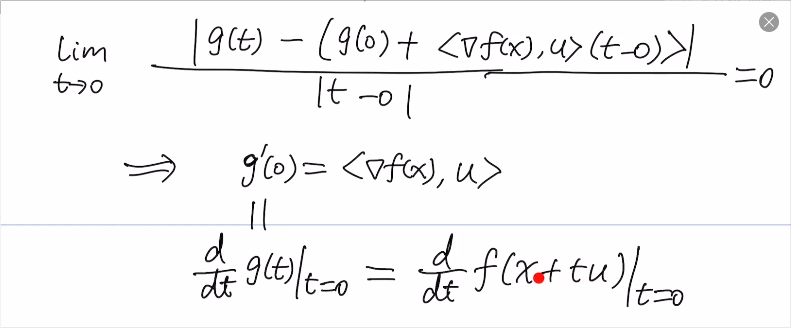 lim t→0 |g(t) − (g(0) + <∇f(x), u>(t−0)>| / |t−0| = 0
⟹ g'(0) = <∇f(x), u>
||
d/dt g(t)|t=0 = d/dt f(x+tu)|t=0